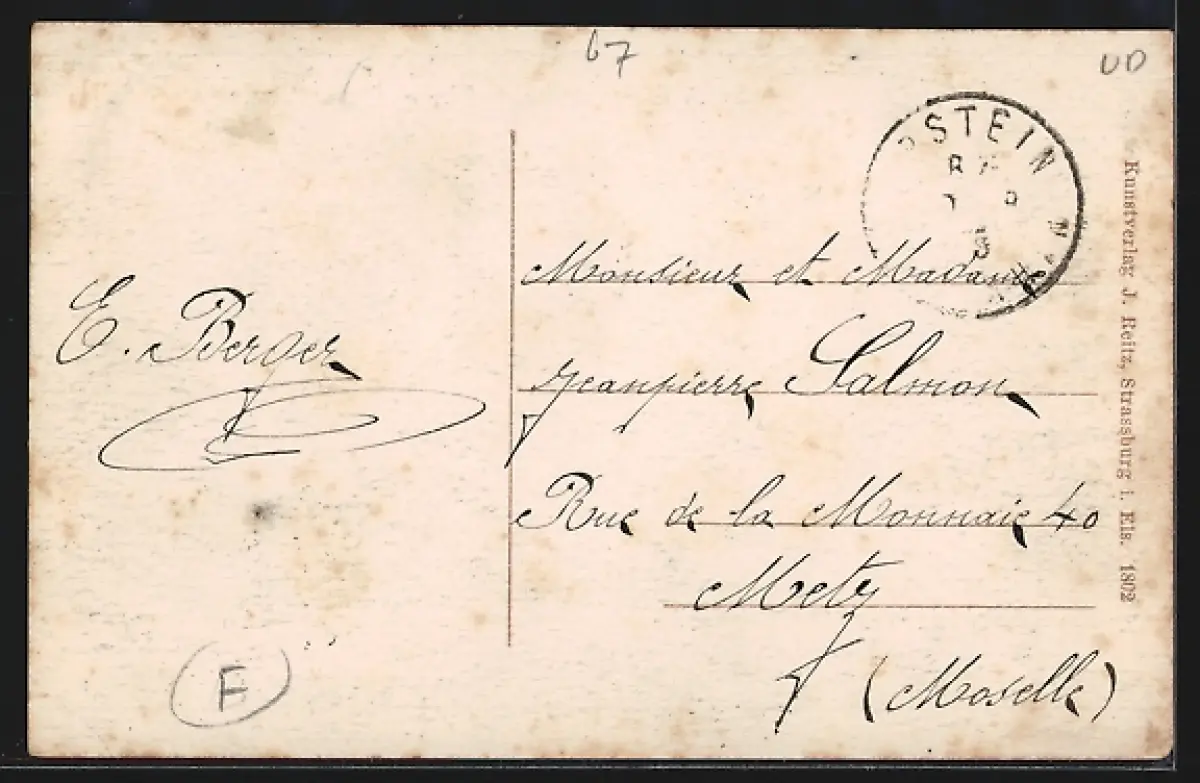 67
UD
STEIN
E. Berger
Monsieur et Madame
Jeanpierre Salmon
Rue de la Monnaie 40
Metz
(Moselle)
F
Kunstverlag J. Reitz, Strassburg i. Els. 1802